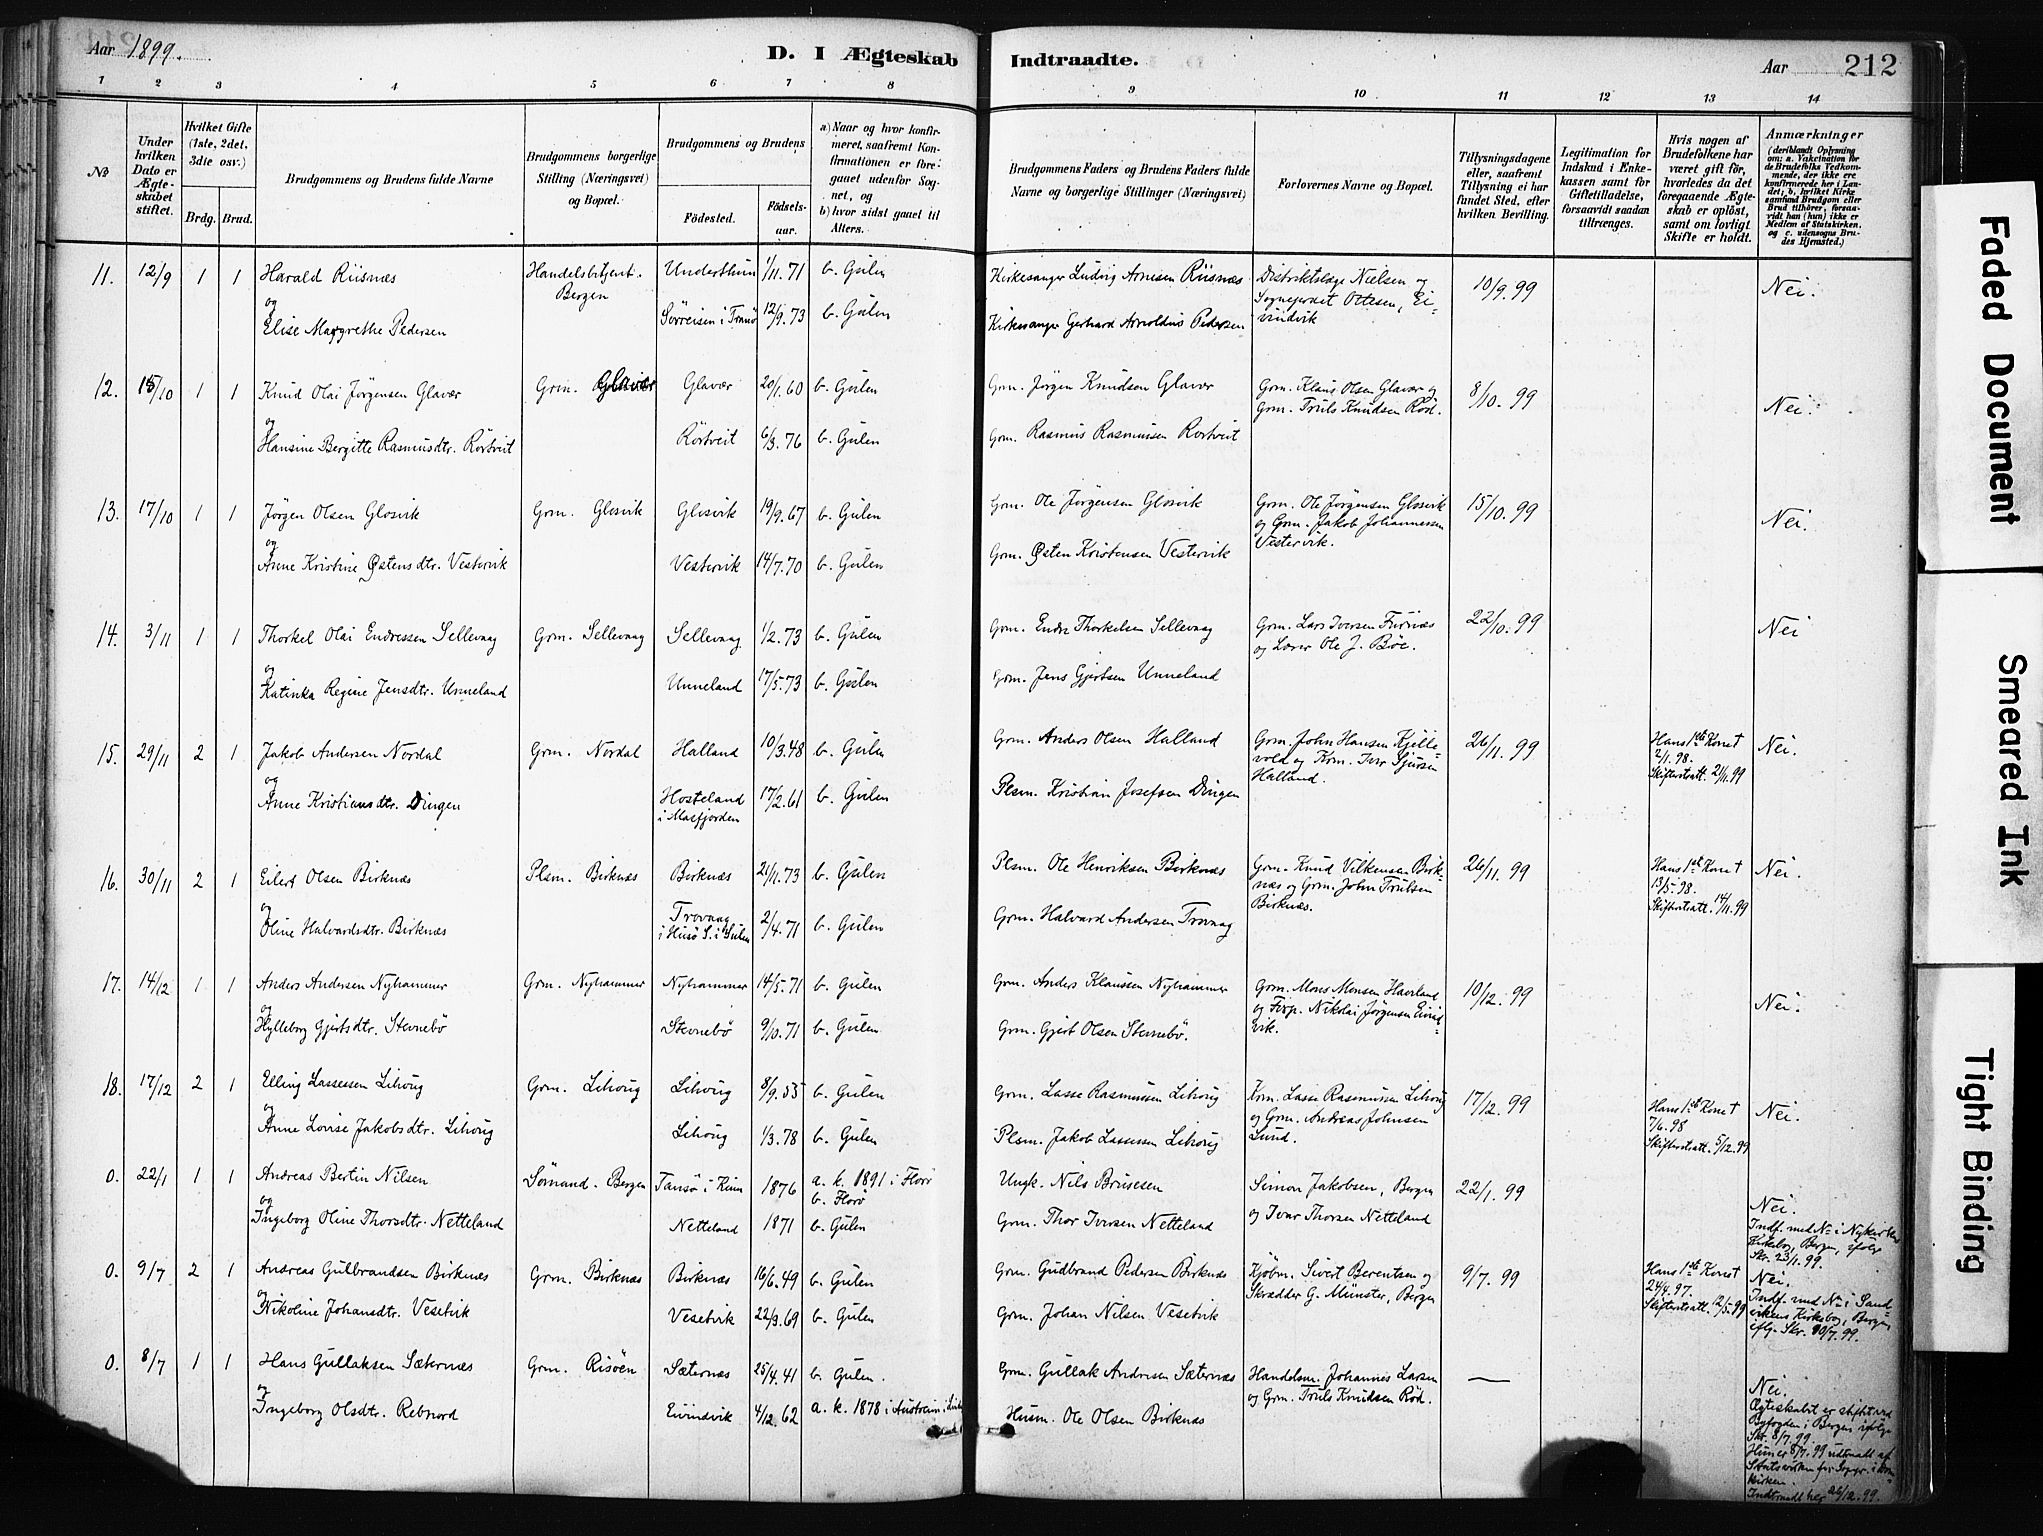 Aar 1899.
D. I Ægteskab Indtraadte.
Aar 212
1 2 3 4 5 6 7 8 9 10 11 12 13 14
No
Under hvilken Dato er Ægteskabet stiftet.
Hvilket Gifte (1ste, 2det, 3die osv.)
Brdg. Brud.
Brudgommens og Brudens fulde Navne
Brudgommens borgerlige Stilling (Næringsvei) og Bopæl.
Brudgommens og Brudens
Fødested.
Fødselsaar.
a) Naar og hvor konfirmeret, saafremt Konfirmationen er foregaaet udenfor Sognet, og
b) hvor sidst gaaet til Alters.
Brudgommens Faders og Brudens Faders fulde Navne og borgerlige Stillinger (Næringsvei)
Forlovernes Navne og Bopæl.
Tillysningsdagene eller, saafremt Tillysning ei har fundet Sted, efter hvilken Bevilling.
Legitimation for Indskud i Enkekassen samt for Giftetilladelse, forsaavidt saadan tiltrænges.
Hvis nogen af Brudefolkene har været gift før, hvorledes da det foregaaende Ægteskab er opløst, samt om lovligt Skifte er holdt.
Anmærkninger (deriblandt Oplysning om: a. Vakcination for de Brudefolks Vedkommende, der ikke ere konfirmerede her i Landet; b. hvilket Kirkesamfund Brudgom eller Brud tilhører, forsaavidt han (hun) ikke er Medlem af Statskirken, og c. udensogns Brudes Hjemsted.)
11. 12/9 1 1 Harald Riisnæs Handelsbetjent. Bergen 1/11. 71 b. Gulen Kirkesanger Ludvig Arnesen Riisnæs Distriktslæge Nielsen og Sogneprest Ottesen, Eivindvik 10/9. 99 Nei.
og
Elise Margrethe Pedersen Sørreisen i Tranø 12/9. 73 b. Gulen Kirkesanger Gerhard Arnoldus Pedersen
12. 15/10 1 1 Knud Olai Jørgensen Glavær Grm. Glavær Glavær 20/1. 60 b. Gulen Grm. Jørgen Knudsen Glavær Grm. Klaus Olsen Glavær og Grm. Truls Knudsen Rød. 8/10. 99 Nei.
og
Hansine Bergitte Rasmusdtr. Rørtveit Rørtveit 6/3. 76 b. Gulen Grm. Rasmus Rasmussen Rørtveit
13. 17/10 1 1 Jørgen Olsen Glosvik Grm. Glosvik Glosvik 19/9. 67 b. Gulen Grm. Ole Jørgensen Glosvik Grm. Ole Jørgensen Glosvik og Grm. Jakob Johannessen Vestervik. 15/10. 99 Nei.
og
Anne Kristine Østensdtr. Vestervik Vestervik 14/7. 70 b. Gulen Grm. Østen Kristensen Vestervik
14. 3/11 1 1 Thorkel Olai Endressen Sellevaag Grm. Sellevaag Sellevaag 1/2. 73 b. Gulen Grm. Endre Thorkelsen Sellevaag Grm. Lars Iversen Furnæs og Lærer Ole J. Böe. 22/10. 99 Nei
og
Katinka Regine Jensdtr. Unneland Unneland 17/5. 73 b. Gulen Grm. Jens Gjertsen Unneland
15. 29/11 2 1 Jakob Andersen Nordal Grm. Nordal Halland 10/3. 48 b. Gulen Grm. Anders Olsen Halland Grm. John Hansen Kjellevold og Krm. Iver Sjursen Halland. 26/11. 99 Hans 1ste Kone † 2/1. 98. Skifteratt. 21/11. 99 Nei.
og
Anne Kristiansdtr. Dingen Hosteland i Masfjorden 17/2. 61 b. Gulen Plsm. Kristian Josefsen Dingen
16. 30/11 2 1 Eilert Olsen Birknæs Plsm. Birknæs Birknæs 21/11. 73 b. Gulen Plsm. Ole Henriksen Birknæs Grm. Knud Vilkensen Birknæs og Grm. John Trulsen Birknæs. 26/11. 99 Hans 1ste Kone † 13/5. 98. Skifteratt. 14/11. 99 Nei.
og
Oline Halvardsdtr. Birknæs Trovaag i Husø S. i Sulen 2/4. 71 b. Gulen Grm. Halvard Andersen Trovaag
17. 14/12 1 1 Anders Andersen Nyhammer Grm. Nyhammer Nyhammer 14/5. 71 b. Gulen Grm. Anders Klaussen Nyhammer Grm. Mons Monsen Haveland og Fixp. Nikolai Jørgensen Eivindvik. 10/12. 99 Nei.
og
Hylleborg Gjertsdtr. Stevnebø Stevnebø 9/10. 71 b. Gulen Grm. Gjert Olsen Stevnebø.
18. 17/12 2 1 Elling Lassesen Lihoug Grm. Lihoug Lihoug 8/9. 55 b. Gulen Grm. Lasse Rasmussen Lihoug Krm. Lasse Rasmussen Lihoug og Grm. Andreas Johnsen Lund. 17/12. 99 Hans 1ste Kone † 7/6. 98 Skifteratt. 5/12. 99 Nei.
og
Anne Lovise Jakobsdtr. Lihoug Lihoug 1/3. 78 b. Gulen Plsm. Jakob Lassesen Lihoug
0. 22/1 1 1 Andreas Bertin Nilsen Sømand. Bergen Tansø i Kinn 1876 a. k. 1891 i Florø b. Florø Ungk. Nils Brusesen Simon Jakobsen, Bergen og Ivar Thorsen Netteland 22/1. 99 Nei. Indf. med No i Nykirkens Kirkebog, Bergen, ifølge Skr. 23/1. 99.
og
Ingeborg Oline Thorsdtr. Netteland Netteland 1871 b. Gulen Grm. Thor Iversen Netteland
0. 9/7 2 1 Andreas Gulbrandsen Birknæs Grm. Birknæs Birknæs 16/6. 49 b. Gulen Grm. Gudbrand Pedersen Birknæs Kjøbm. Sivert Berentsen og Skrædder G. Münster, Bergen 9/7. 99 Hans 1ste Kone † 24/4. 97. Skifteratt. 12/5. 99 Nei. Indf. med No i Sandvikens Kirkebog, Bergen, iflg. Skr. 10/7. 99.
og
Nikoline Johansdtr. Vesetvik Vesetvik 22/3. 69 b. Gulen Grm. Johan Nilsen Vesetvik
0. 8/7 1 1 Hans Gullaksen Sæternæs Grm. Risöen Sæternæs 25/4. 41 b. Gulen. Grm. Gullak Andersen Sæternæs Handelsm. Johannes Larsen og Grm. Truls Knudsen Rød. — Nei. Ægteskabet er stiftet ved Byfogden i Bergen ifølge Skr. 8/7. 99. Hun er 8/7. 99 udtraadt af Statskirken
og
Ingeborg Olsdtr. Rebnord Eivindvik 4/12. 62 a. k. 1878 i Austrheim Husm. Ole Olsen Birknæs Indtraadt her 26/12. 99.
Faded Document
Smeared Ink
Tight Binding